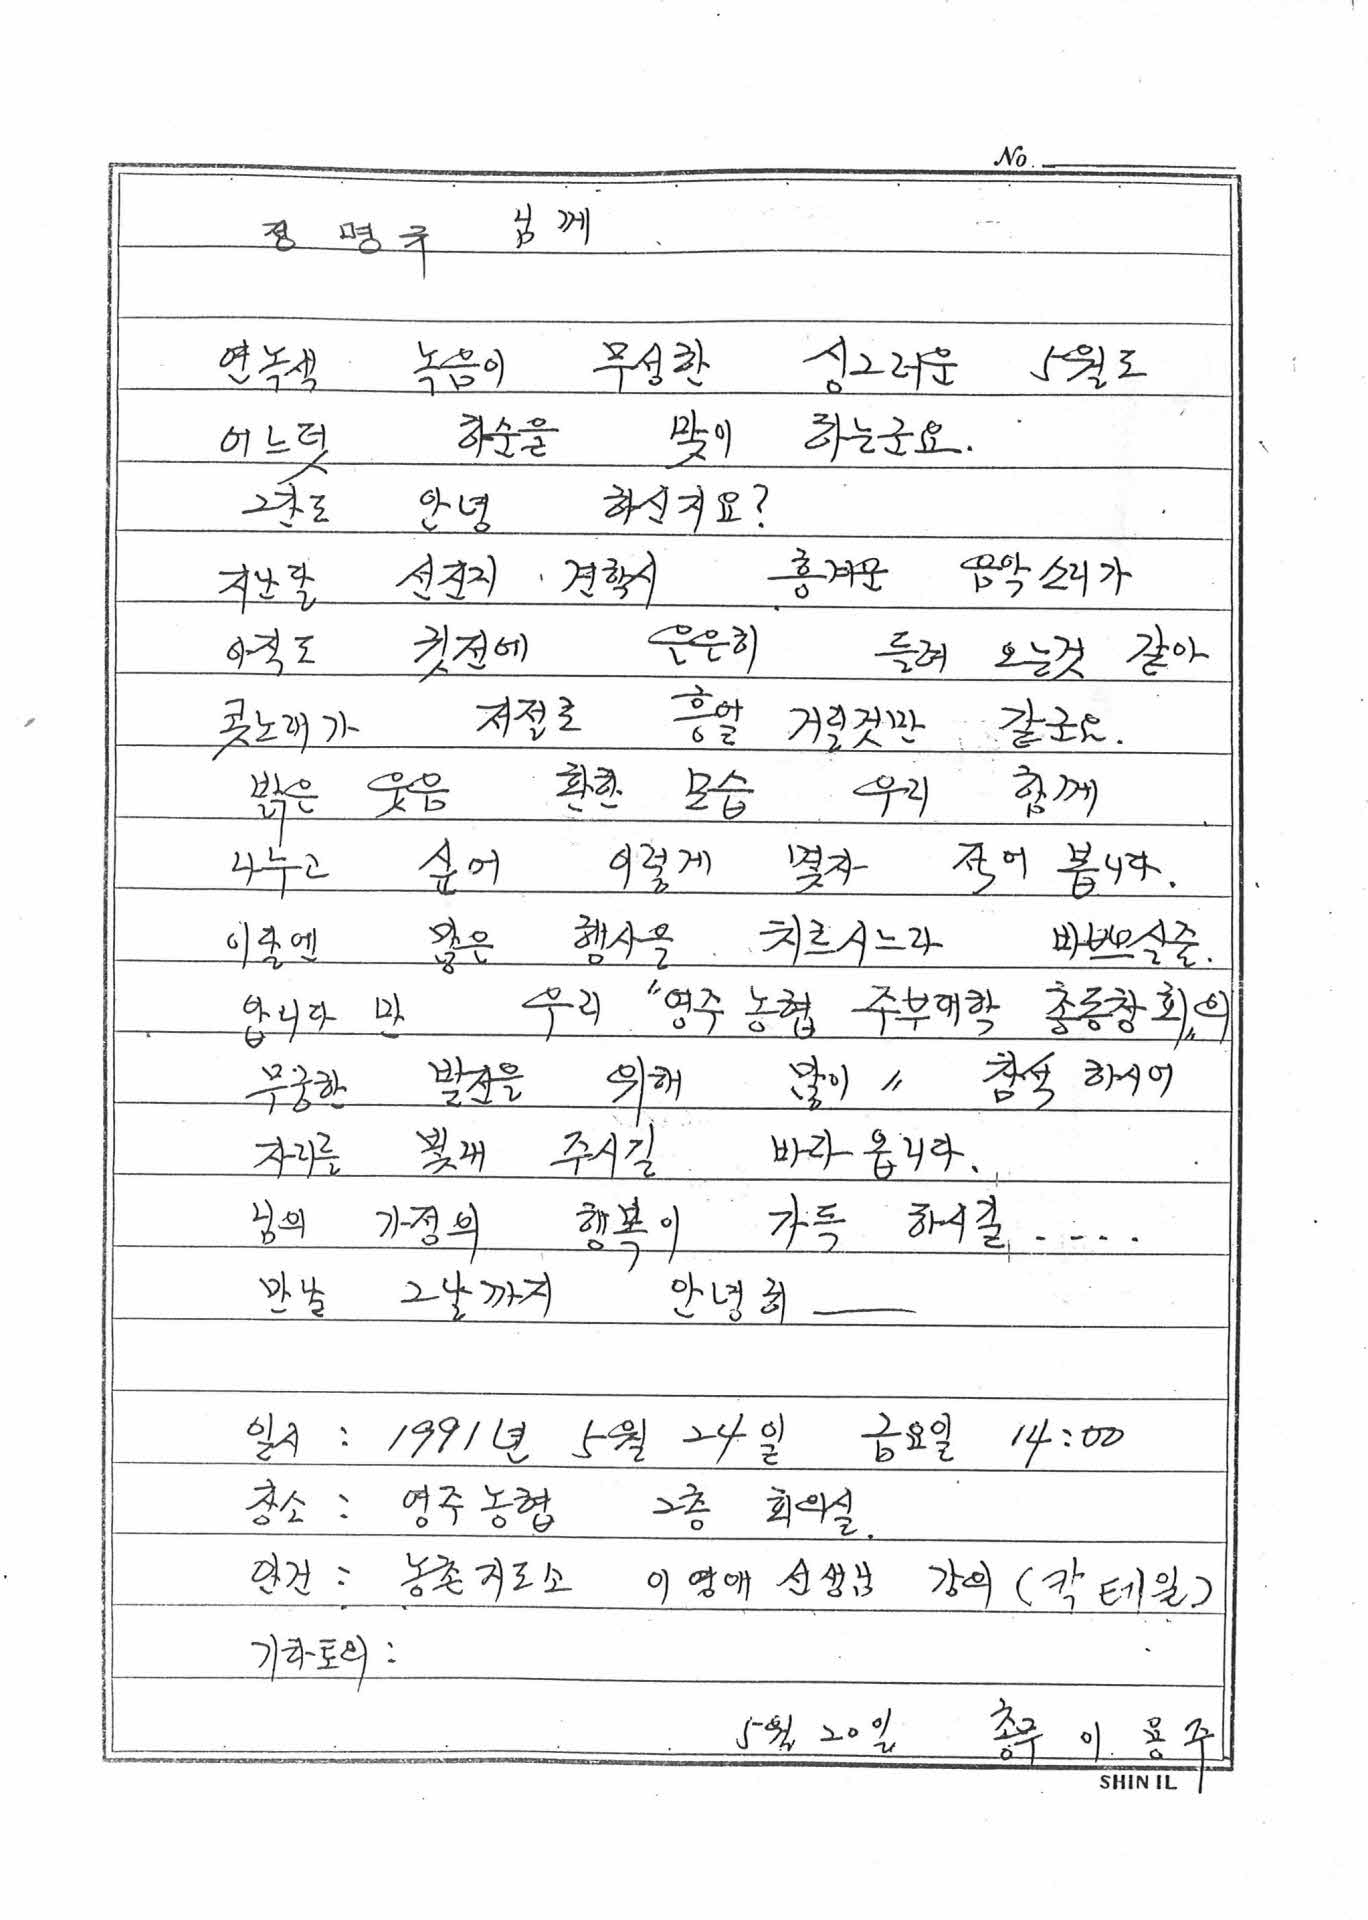 No.
정 명 구 님께
연녹색 녹음이 무성한 싱그러운 5월도
어느덧 하순을 맞이 하는군요.
그간도 안녕 하신지요?
지난달 선진지 견학시 흥겨운 음악소리가
아직도 귓전에 은은히 들려 오는것 같아
콧노래가 저절로 흥얼 거릴것만 같군요.
밝은 웃음 환한 모습 우리 함께
나누고 싶어 이렇게 몇자 적어 봅니다.
이달엔 많은 행사을 치르시느라 바쁘실줄.
압니다 만 우리 "영주농협 주부대학 총동창회"의
무궁한 발전을 위해 많이 〃 참석 하시어
자리를 빛내 주시길 바라옵니다.
님의 가정의 행복이 가득 하시길 . - - - .
만날 그날까지 안녕히 ——
일시 : 1991년 5월 24일 금요일 14:00
장소 : 영주농협 2층 회의실.
안건 : 농촌지도소 이영애 선생님 강의 (칵테일)
기타토의 :
5월 20일 총무 이 용 주
SHIN IL